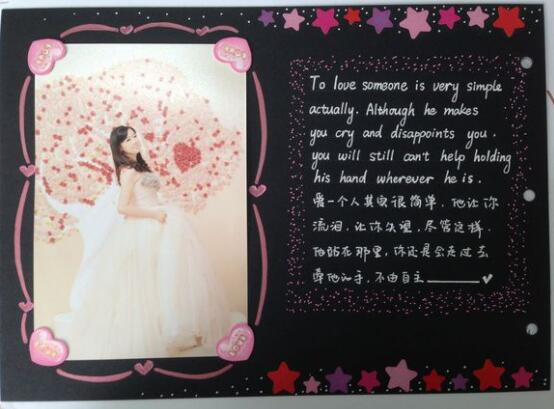 To love someone is very simple
actually. Although he makes
you cry and disappoints you.
you will still can't help holding
his hand wherever he is.
爱一个人其实很简单,他让你
流泪,让你失望,尽管这样,
他站在那里,你还是会走过去
牵他的手,不由自主